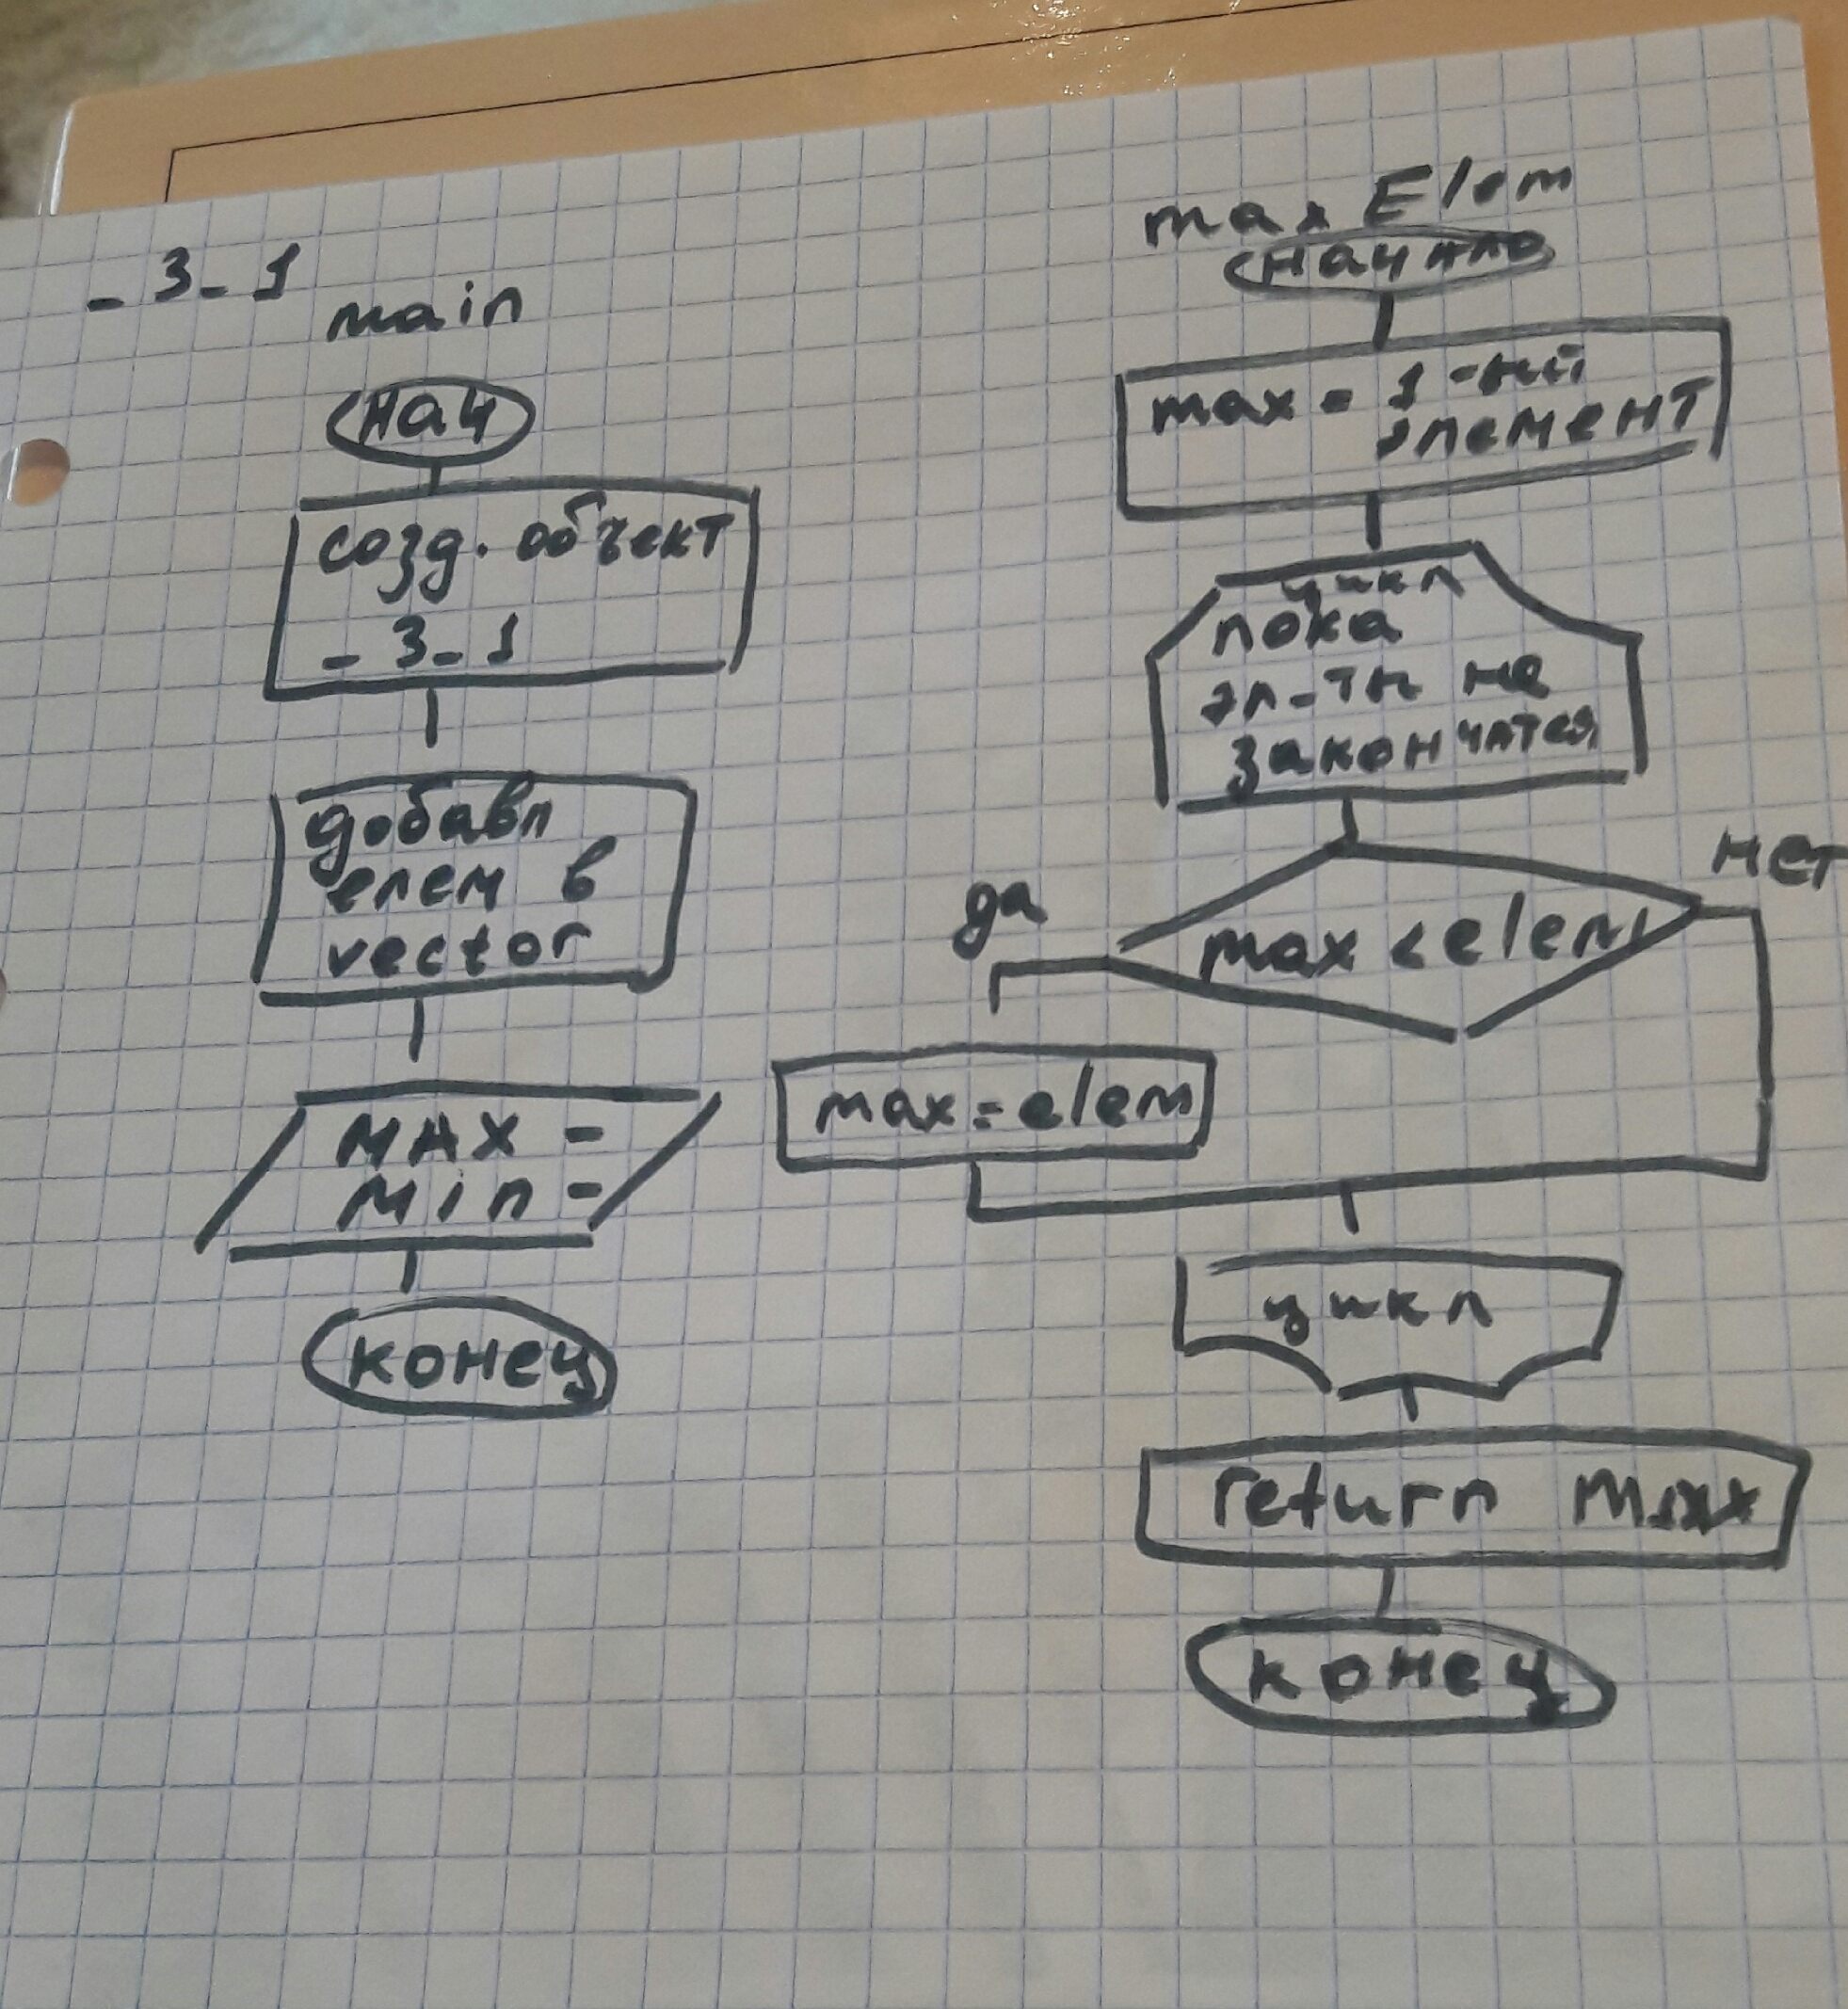 _ 3_1
main
нач
созд. объект
_ 3_ 1
добавл
елем в
vector
MAX =
Min =
конец
max Elem
начало
max = 1-ый
элемент
цикл
пока
эл-ты не
закончатся
max < elem
да
нет
max = elem
цикл
return max
конец